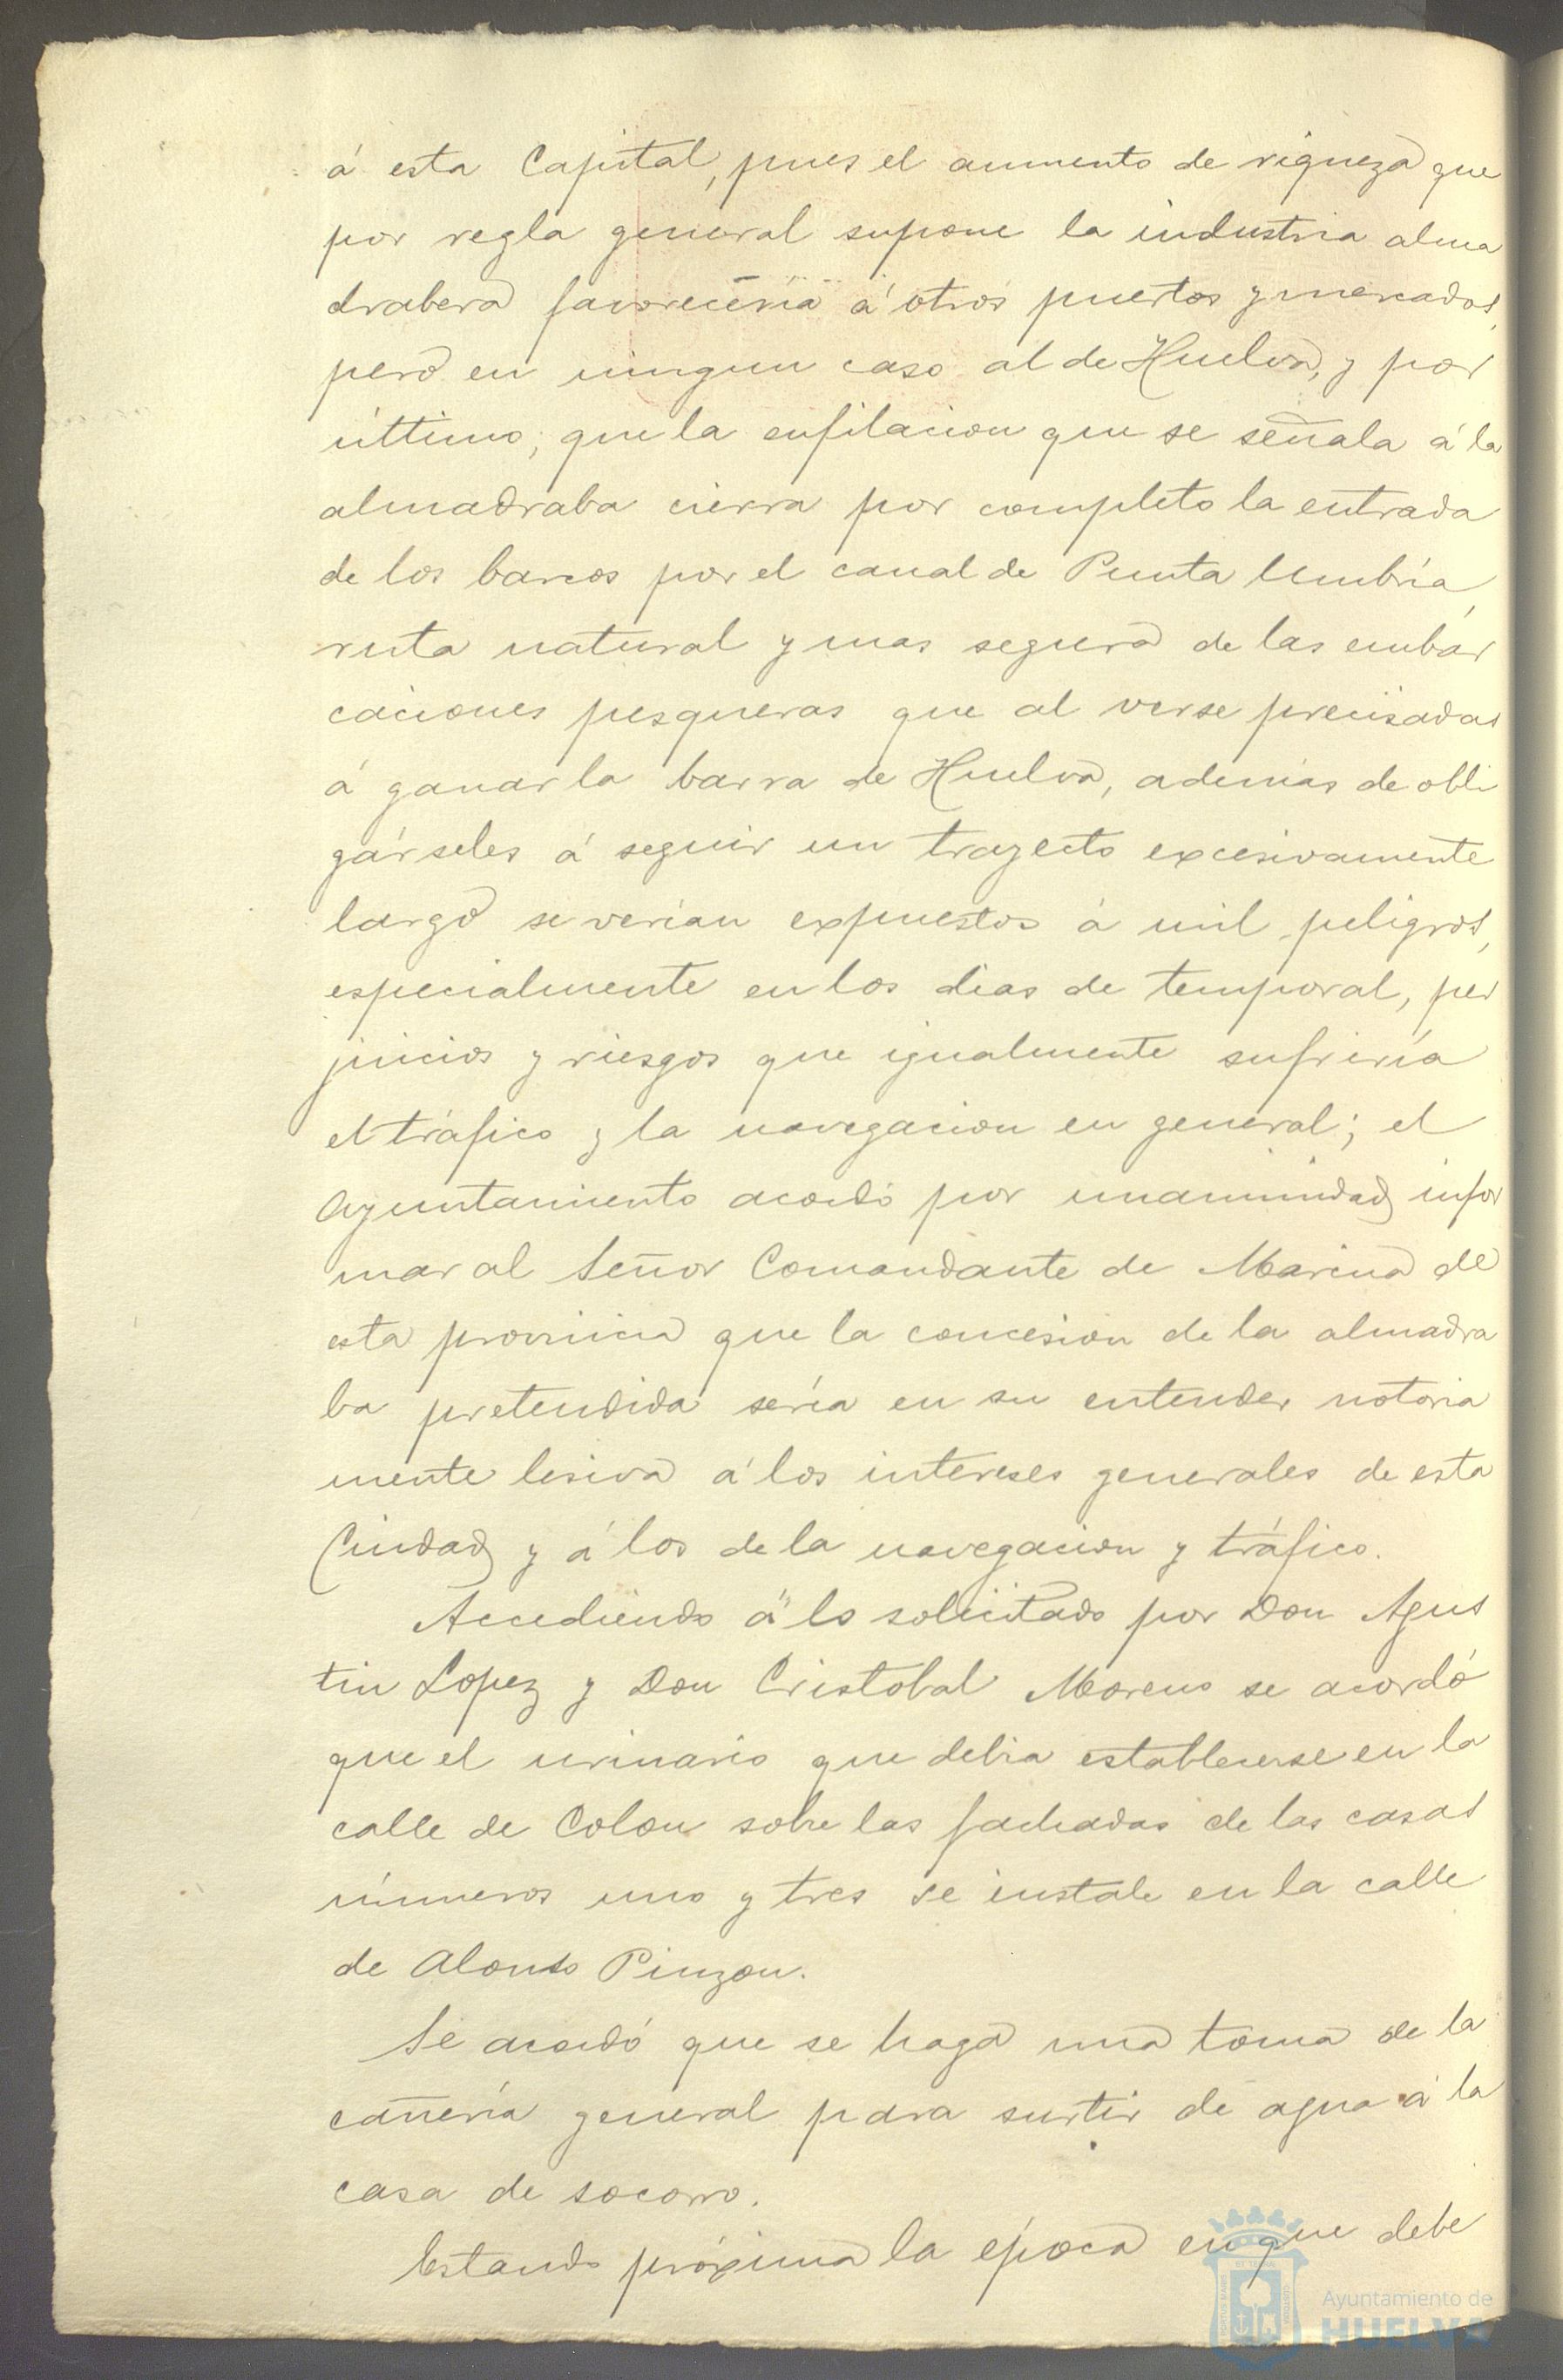 á esta Capital, pues el aumento de riqueza que
por regla general supone la industria alma
drabera favorecería á otros puertos y mercados,
pero en ningun caso al de Huelva, y por
último, que la enfilacion que se señala á la
almadraba cierra por completo la entrada
de los barcos por el canal de Punta Umbría,
ruta natural y mas segura de las embar
caciones pesqueras que al verse precisadas
á ganar la barra de Huelva, además de obli
gárseles á seguir un trayecto excesivamente
largo se verian expuestos á mil peligros,
especialmente en los dias de temporal, per
juicios y riesgos que igualmente sufriría
el tráfico y la navegacion en general; el
Ayuntamiento acordó por unanimidad infor
mar al Señor Comandante de Marina de
esta provincia que la concesion de la almadra
ba pretendida sería en su entender notoria
mente lesiva á los intereses generales de esta
Ciudad y á los de la navegacion y tráfico.
Accediendo á lo solicitado por Don Agus
tin Lopez y Don Cristobal Moreno se acordó
que el urinario que debia establecerse en la
calle de Colon sobre las fachadas de las casas
números uno y tres se instale en la calle
de Alonso Pinzon.
Se acordó que se haga una toma de la
cañería general para surtir de agua á la
casa de socorro.
Estando próxima la época en que debe
Ayuntamiento de
HUELVA